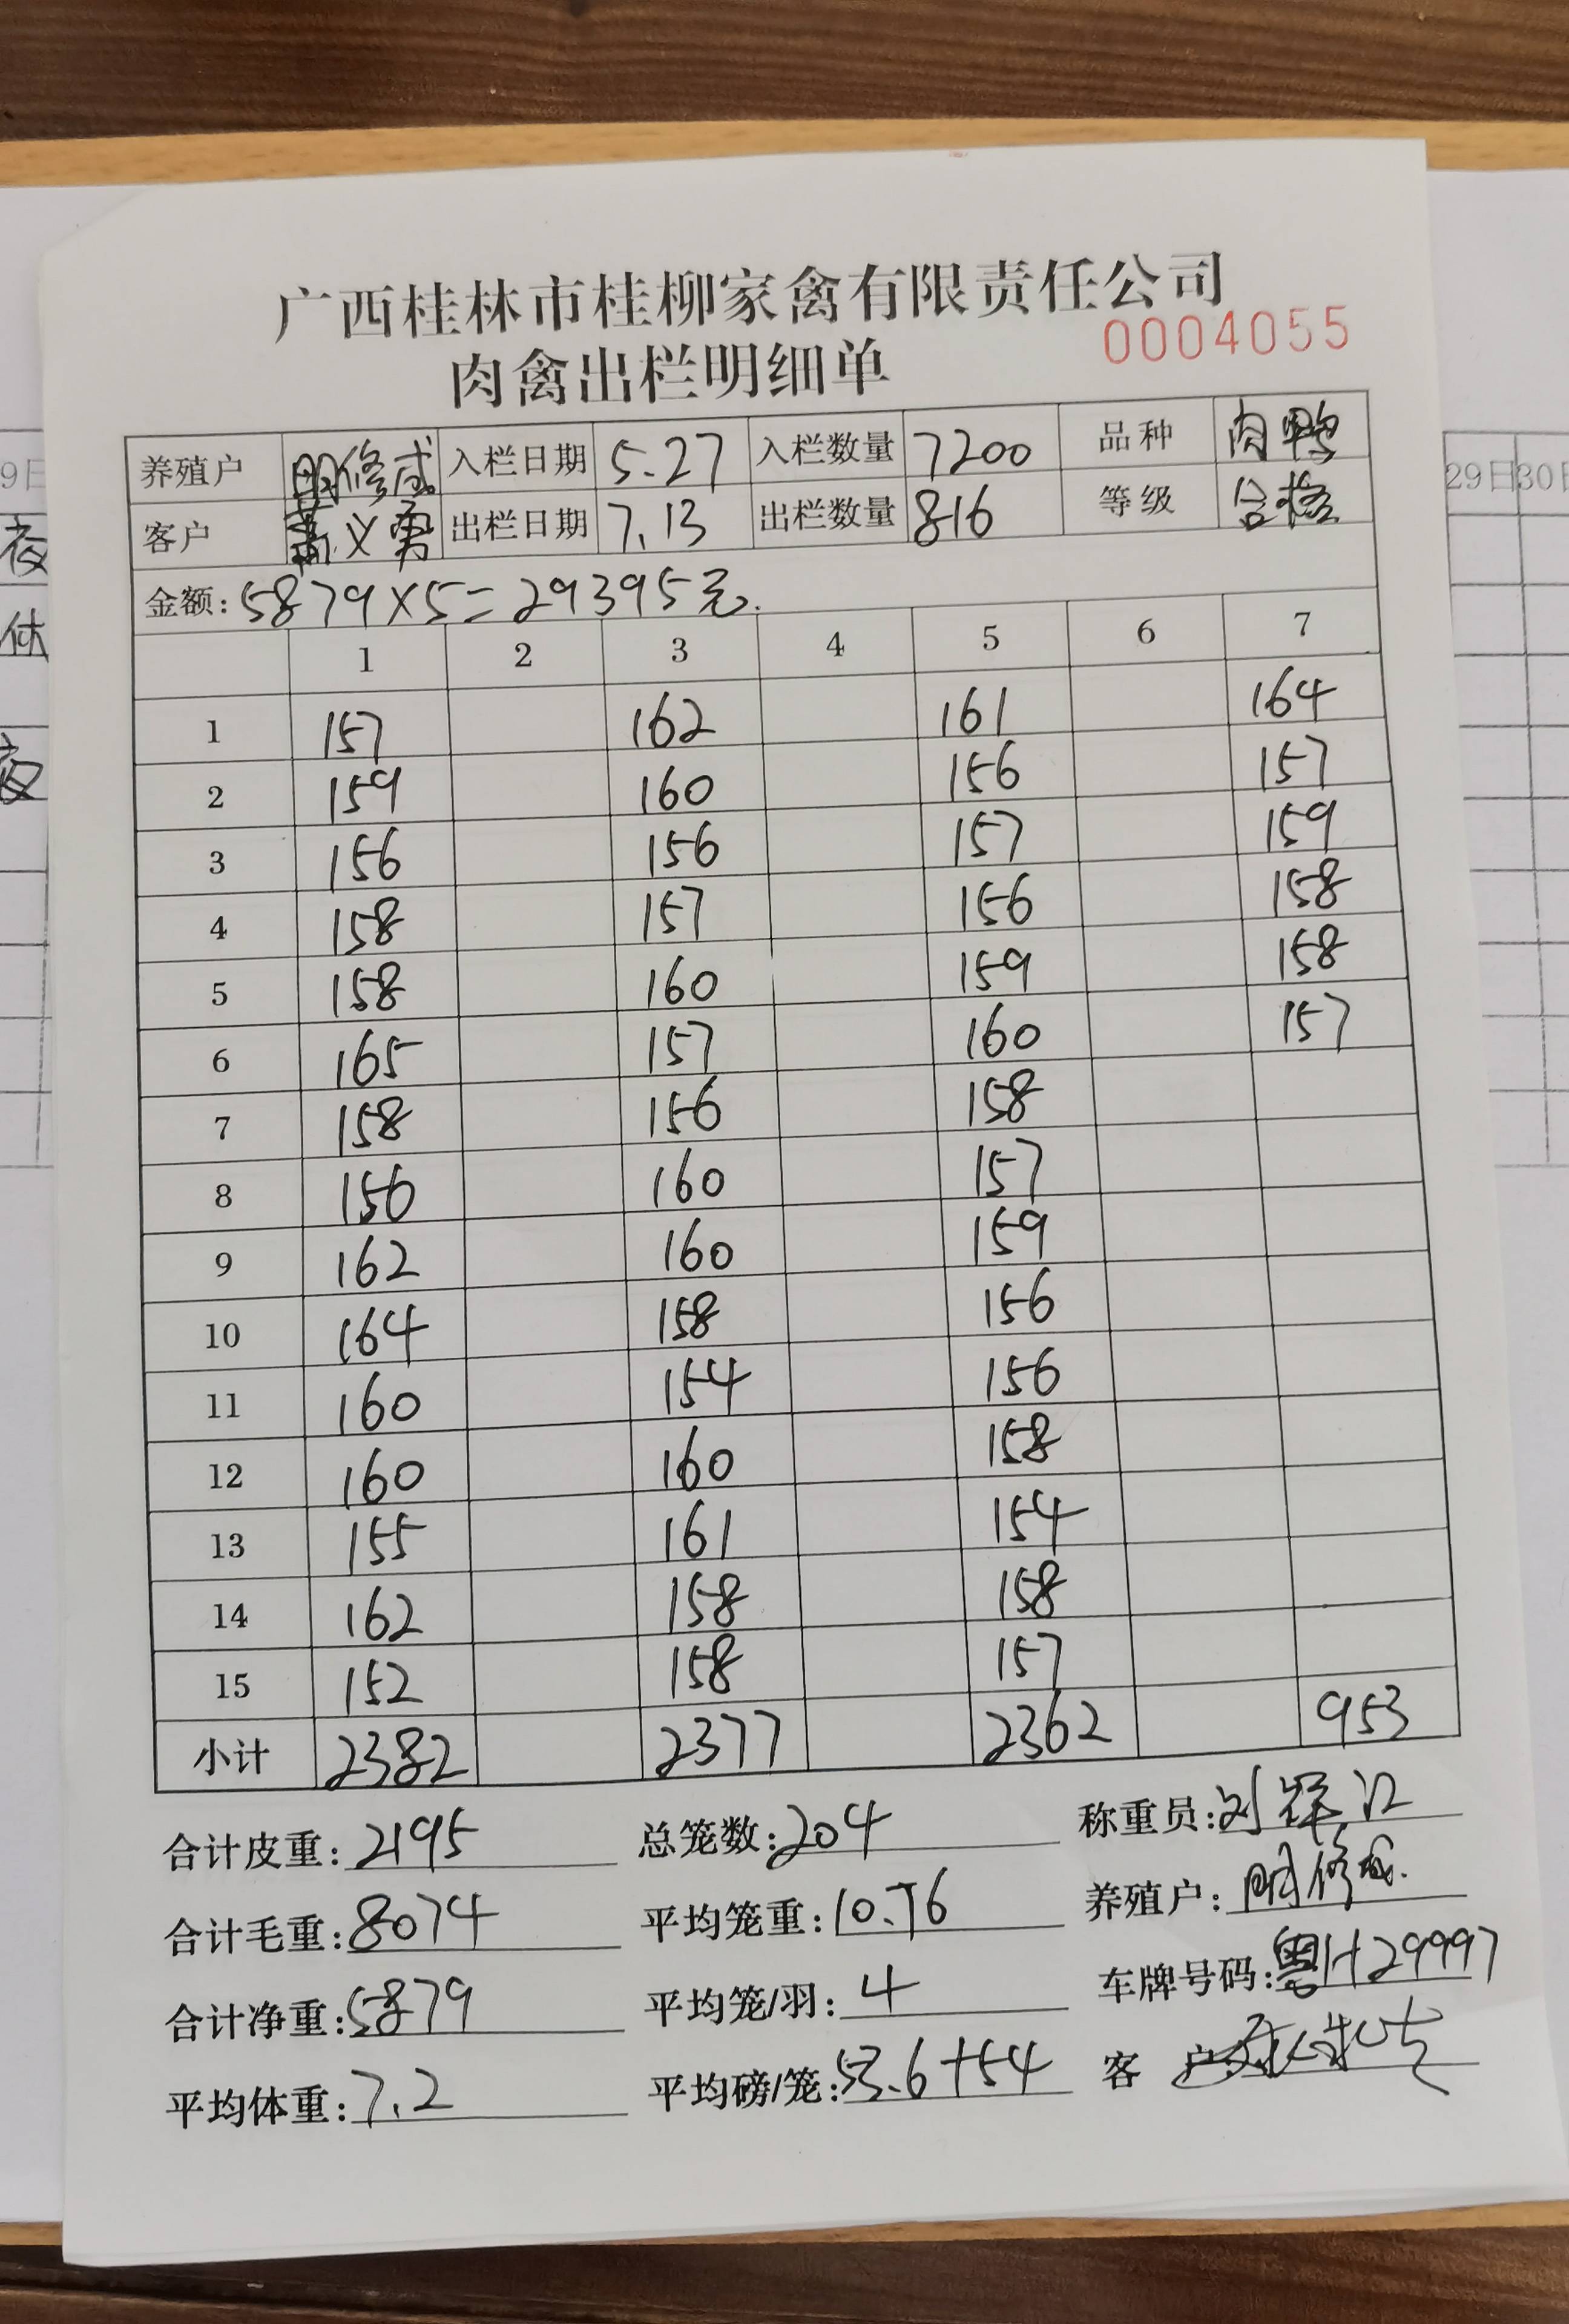 广西桂林市桂柳家禽有限责任公司
肉禽出栏明细单 0004055
养殖户 明修成 入栏日期 5.27 入栏数量 7200 品种 肉鸭
客户 义勇 出栏日期 7.13 出栏数量 816 等级 合格
金额: 5879×5=29395元.
1 2 3 4 5 6 7
1 157 162 161 164
2 159 160 156 157
3 156 156 157 159
4 158 157 156 158
5 158 160 159 158
6 165 157 160 157
7 158 156 158
8 156 160 157
9 162 160 159
10 164 158 156
11 160 154 156
12 160 160 158
13 155 161 154
14 162 158 158
15 152 158 157
小计 2382 2377 2362 953
合计皮重: 2195 总笼数: 204 称重员: 刘江
合计毛重: 8074 平均笼重: 10.76 养殖户: 明修成.
合计净重: 5879 平均笼/羽: 4 车牌号码: 粤H29997
平均体重: 7.2 平均磅/笼: 53.6+54 客户
29日 30日
9日
夜
休
夜